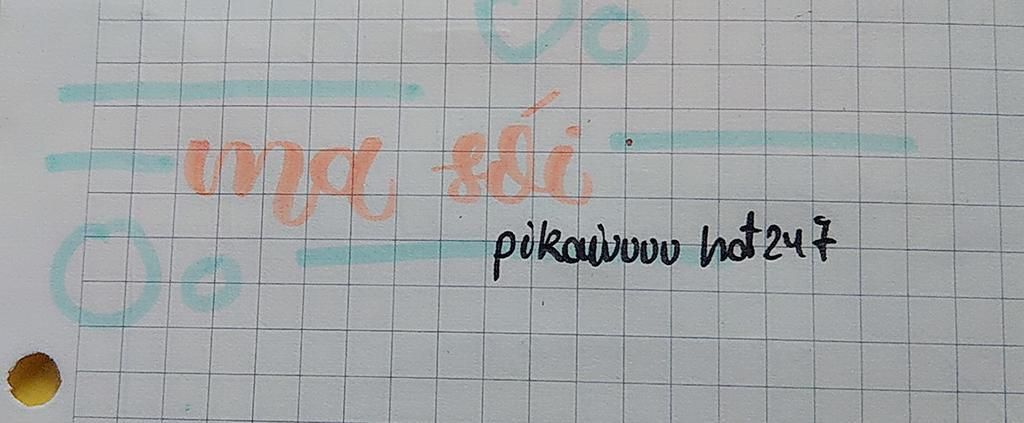 ma sói
pikawuuu hot247